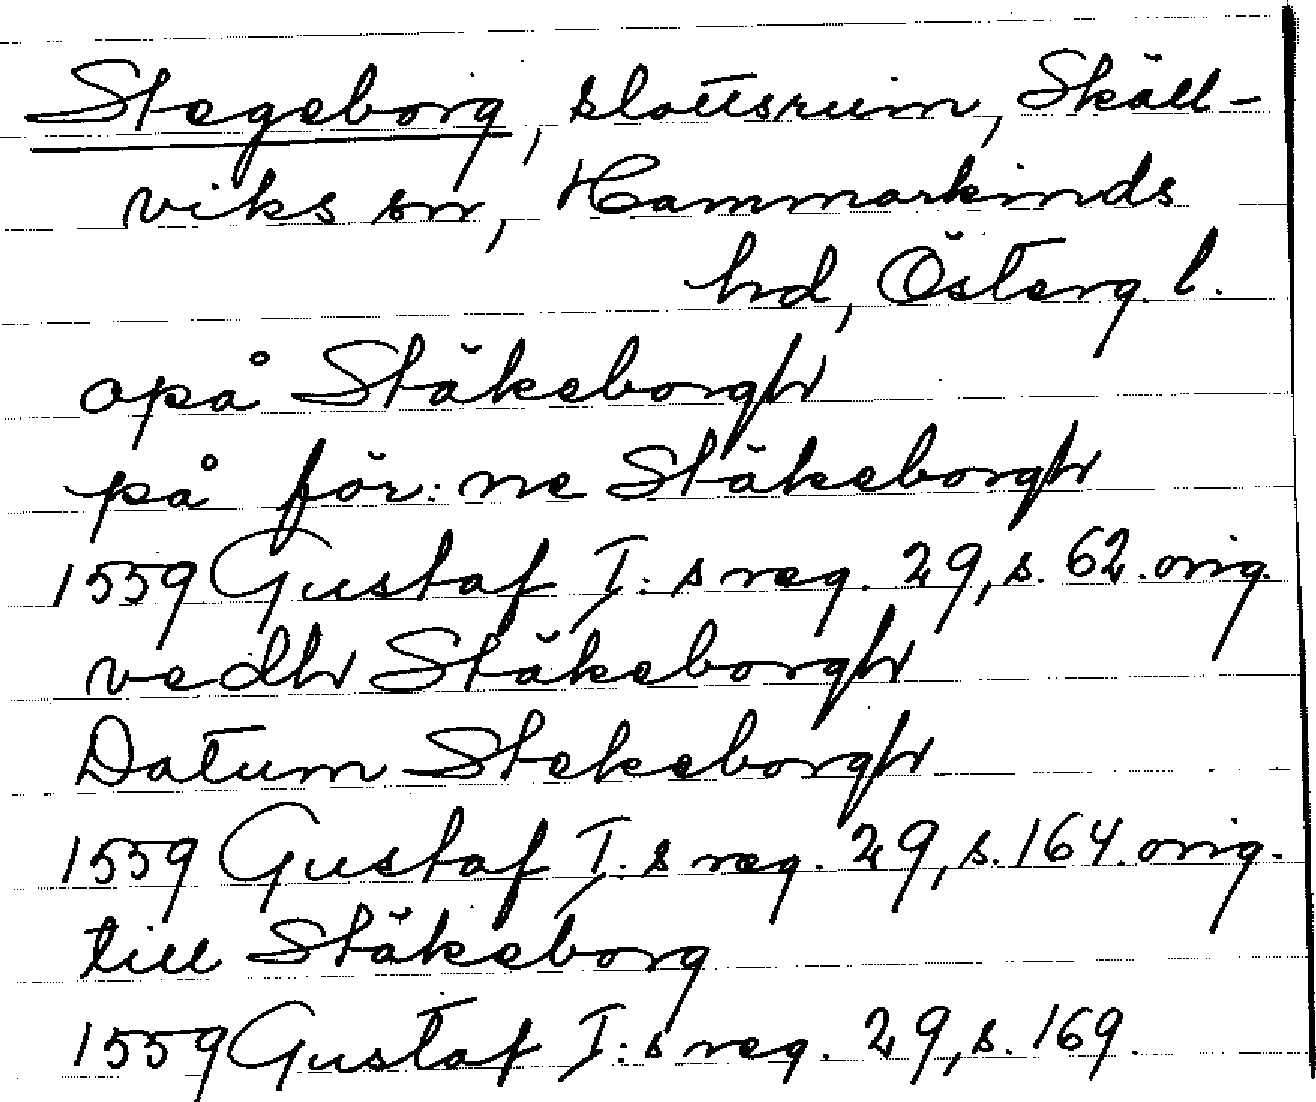 Stegeborg, slottsruin, Skäll-
viks sn, Hammarkinds
hd, Österg. l.
opå Stäkeborgh
på för:ne Stäkeborgh
1559 Gustaf I:s reg. 29, s. 62. orig.
vedh Stäkeborgh
Datum Stekeborgh
1559 Gustaf I:s reg. 29, s. 164. orig.
till Stäkeborg
1559 Gustaf I:s reg. 29, s. 169.